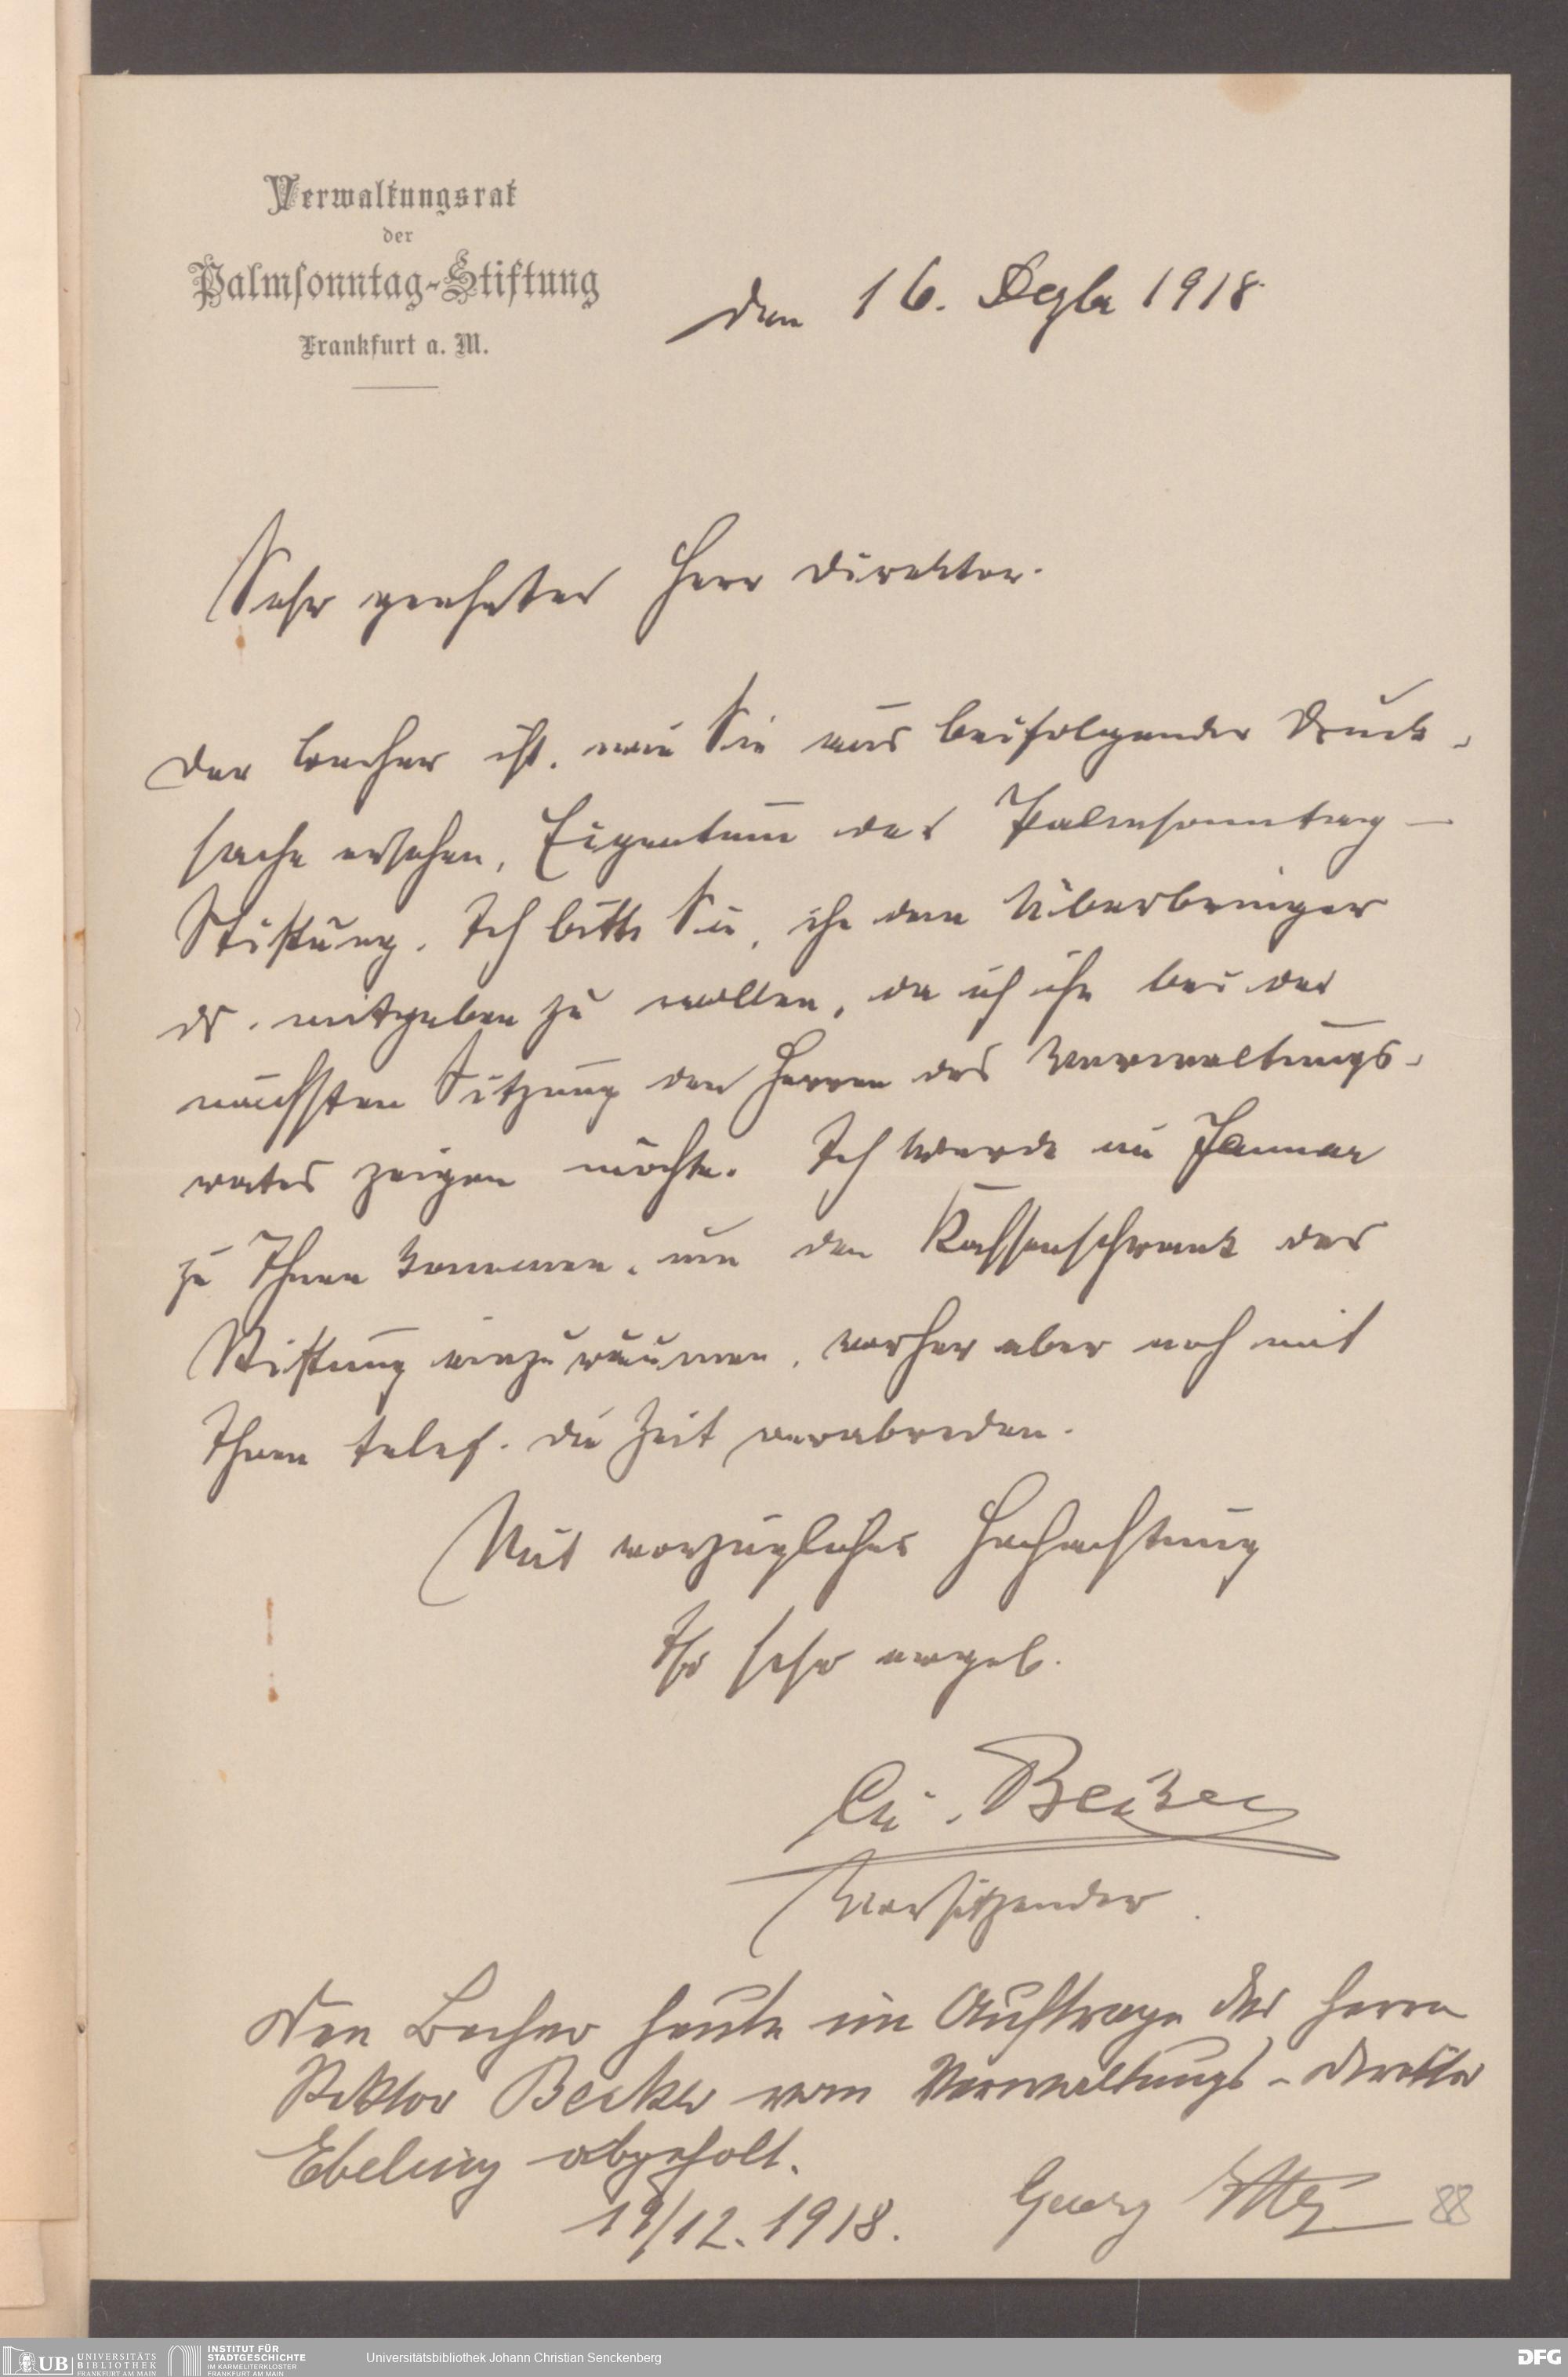 Verwaltungsrat
der
Palmsonntag-Stiftung
Frankfurt a. M.
den 16. Dezbr 1918.
Sehr geehrter Herr Direktor.
Der Becher ist, wie Sie aus beifolgender Druck-
sache ersehen, Eigentum der Palmsonntag-
Stiftung. Ich bitte Sie, ihn dem Überbringer
ds. mitgeben zu wollen, da ich ihn bei der
nächsten Sitzung den Herren des Verwaltungs-
rates zeigen möchte. Ich werde im Januar
zu Ihnen kommen, um den Kassenschrank der
Stiftung einzuräumen, vorher aber noch mit
Ihnen telef. die Zeit verabreden.
Mit vorzüglicher Hochachtung
Ihr sehr ergeb.
Becker
Vorsitzender.
Den Becher heute im Auftrage des Herrn
Rektor Becker vom Verwaltungs-Direktor
Ebeling abgeholt.
19/12. 1918. Georg
88
UB UNIVERSITÄTS
BIBLIOTHEK
FRANKFURT AM MAIN
INSTITUT FÜR
STADTGESCHICHTE
IM KARMELITERKLOSTER
FRANKFURT AM MAIN
Universitätsbibliothek Johann Christian Senckenberg
DFG